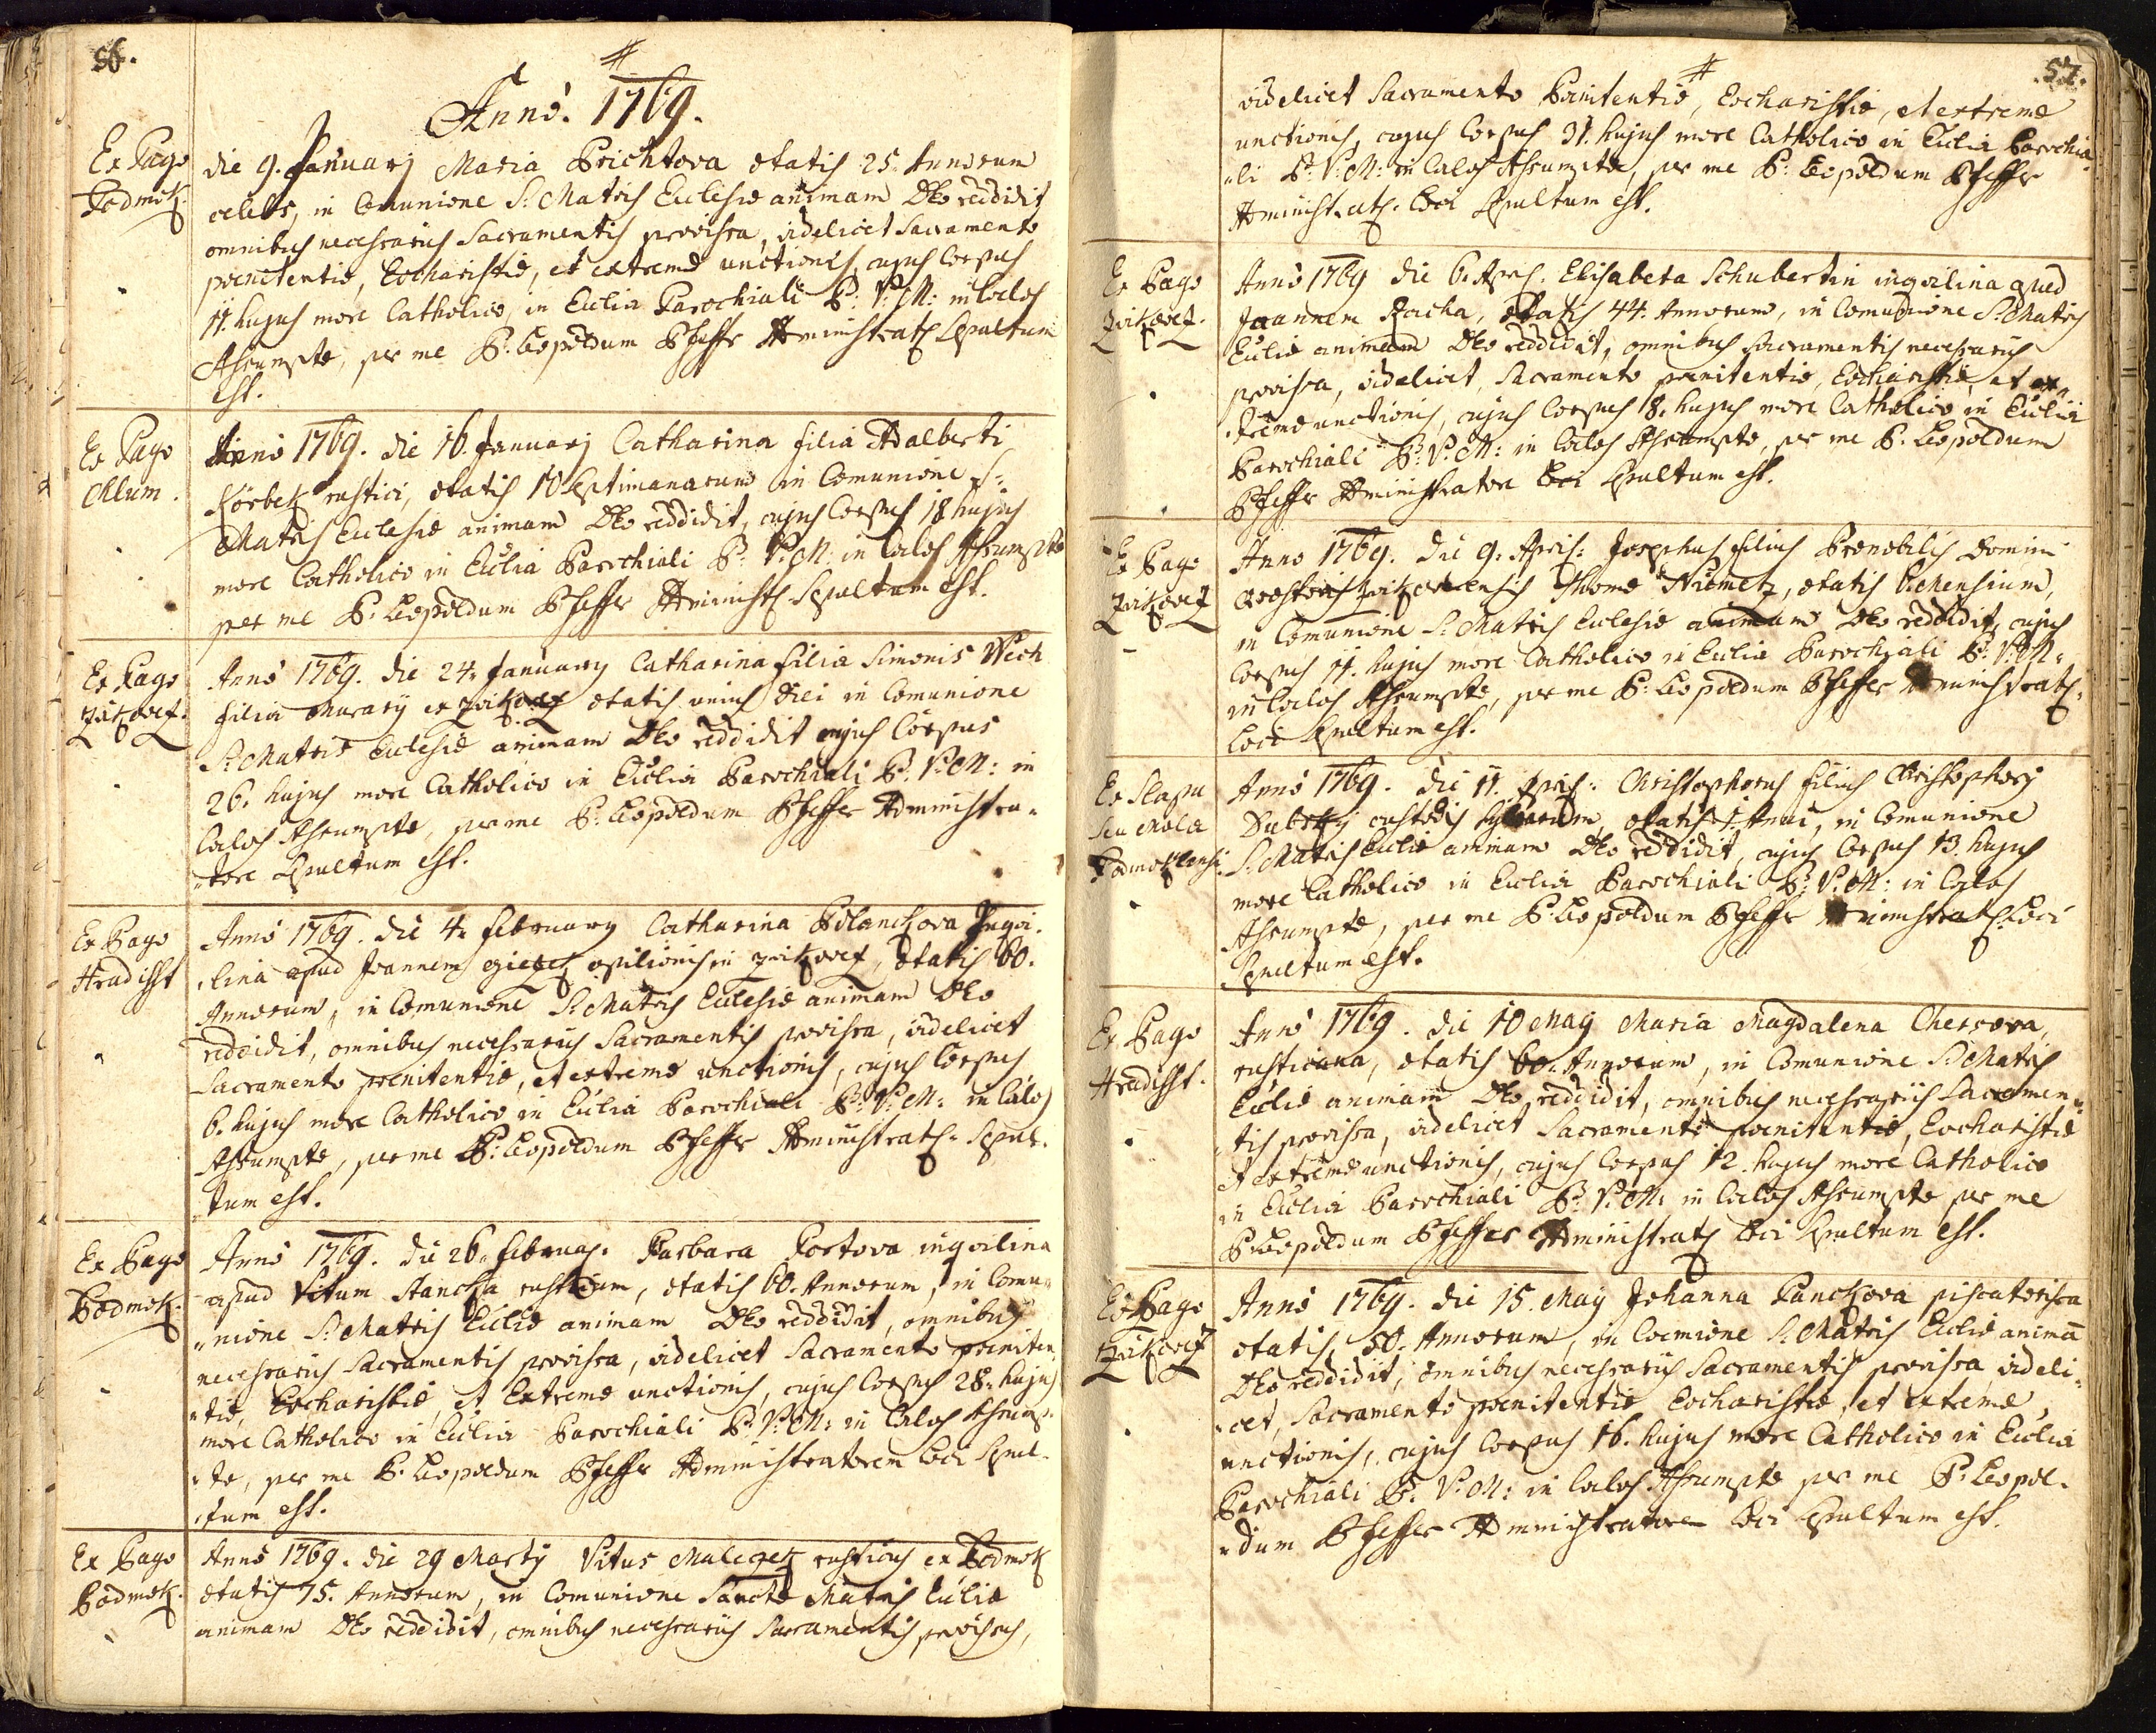 56.
#
Anno. 1769.
Ex Pago
Podmok.
die 9. Januarÿ Maria Prichtova ætatis 25. Annorum
celebs, in Comunione S: Matris Eccleſiæ animam Deo reddidit
omnibus neceſsarÿs Sacramentis proviſa, videlicet Sacramento
pœnitentiæ, Eocharistiæ, et extremæ unctionis, cujus Corpus
11. hujus more Catholico, in Ecclia Parochiali B: V: M: in Cælos
Aſsumptæ, per me P: Leopoldum Pfeffer Administrat: Sepultum
est.
Ex Pago
Chlum.
Anno 1769. die 16. Januarÿ Catharina filia Adalberti
Körbek rustici, ætatis 10 Septimanarum in Comunione S:
Matris Eccleſiæ animam Deo reddidit, cujus Corpus 18 hujus
more Catholico in Ecclia Parochiali B: V: M: in Cælos Aſsumptæ
per me P: Leopoldum Pfeffer Administ: Sepultum est.
Ex Pago
Zvikovez.
Anno 1769. die 24. Januarÿ Catharina filia Simonis Wech
filia murarÿ ex Zvikovez ætatis unius diei in Comunione
S: Matris Eccleſiæ animam Deo reddidit cujus Corpus
26. hujus more Catholico in Ecclia Parochiali B: V: M: in
Cælos Aſsumptæ, per me P: Leopoldum Pfeffer Administra-
-tore Sepultum est.
Ex Pago
Hradisst
Anno 1769. die 4. Februarÿ Catharina Polanckova Inqvi-
-lina apud Joannem opilionis in Zvikovez, ætatis 60.
Annorum, in Comunione S: Matris Eccleſiæ animam Deo
reddidit, omnibus neceſsarÿs Sacramentis proviſa, videlicet
Sacramento pœnitentiæ, et extremæ unctionis, cujus Corpus
6. hujus more Catholico in Ecclia Parochiali B: V: M: in Cælos
Aſsumptæ, per me P: Leopoldum Pfeffer Administrat: Sepul-
-tum est.
Ex Pago
Podmok.
Anno 1769. die 26. Februar: Barbara Portova inqvilina
apud Vitum Stancka rusticum, ætatis 60. Annorum, in Comu-
-nione S: Matris Eccliæ animam Deo reddidit, omnibus
neceſsarÿs Sacramentis proviſa, videlicet Sacramento pœniten-
-tiæ, Eocharistiæ, et Extremæ unctionis, cujus Corpus 28. hujus
more Catholico in Ecclia Parochiali B: V: M: in Cælos Aſsump-
-tæ, per me P: Leopoldum Pfeffer Administratorem Loci Sepul-
-tum est.
Ex Pago
Podmok.
Anno 1769. die 29 Martÿ Vitus rusticus ex Podmok
ætatis 75. Annorum, in Comunione Sanctæ Matris Eccliæ
animam Deo reddidit, omnibus neceſsarÿs Sacramentis proviſus,
57.
#
videlicet Sacramento Pœnitentiæ, Eocharistiæ, et extremæ
unctionis, cujus Corpus 31. hujus more Catholico in Ecclia Parochia-
-li B: V: M: in Cælos Aſsumptæ, per me P: Leopoldum Pfeffer
Administrat: Loci Sepultum est.
Ex Pago
Zvikovez.
Anno 1769 die 6. Apr: Elisabeta Schubertin inqvilina apud
Joannem Racha, ætatis 44. Annorum, in Comunione S: Matris
Eccliæ animam Deo reddidit, omnibus Sacramentis neceſsarÿs
proviſa, videlicet, Sacramento pœnitentiæ, Eocharistiæ, et ex-
-tremæ unctionis, cujus Corpus 8. hujus more Catholico in Ecclia
Parochiali B: V: M: in Cælos Aſsumptæ, per me P: Leopoldum
Pfeffer Administratore Loci Sepultum est.
Ex Pago
Zvikovez
Anno 1769. die 9. Apris: Josephus filius Prænobilis Domini
Qvæstoris Zvikovecensis Thomæ Niemetz, ætatis
in Comunione S: Matris Eccleſiæ animam Deo reddidit, cujus
Corpus 11. hujus more Catholico in Ecclia Parochiali B: V: M:
in Cælos Aſsumptæ, per me P: Leopoldum Pfeffer Administrat:
Loci Sepultum est.
Ex Slapu
seu Mola
Podmoklensi
Anno 1769. die 11. Apris: Christophorus filius Christophory
custodis ætatis 1. Anni, in Comunione
S: Matris Eccliæ animam Deo reddidit, cujus Corpus 13. hujus
more Catholico in Ecclia Parochiali B: V: M: in Cælos
Aſsumptæ, per me P: Leopoldum Pfeffer Administrat: Loci
Sepultum est.
Ex Pago
Hradisst.
Anno 1769. die 10 May Maria Magdalena Chercova,
rusticana, ætatis 60. Annorum, in Comunione S: Matris
Eccliæ animam Deo reddidit, omnibus neceſsarÿs Sacramen-
-tis proviſa, videlicet Sacramento pœnitentiæ, Eocharistiæ
et extremæ unctionis, cujus Corpus 12. hujus more Catholico
in Ecclia Parochiali B: V: M: in Cælos Aſsumptæ per me
P: Leopoldum Pfeffer Administrat: Loci Sepultum est.
Ex Pago
Zvikovez
Anno 1769. die 15. May Johanna Panckova piscatorissa
ætatis, 50. Annorum, in Coemione S: Matris Eccliæ animā
Deo reddidit, omnibus neceſsarÿs Sacramentis proviſa videli-
-cet, Sacramento pœnitentiæ Eocharistiæ, et extremæ
unctionis, cujus Corpus 16. hujus more Catholico in Ecclia
Parochiali B: V: M: in Cælos Aſsumptæ per me P: Leopol-
-dum Pfeffer Administratore Loci Sepultum est.